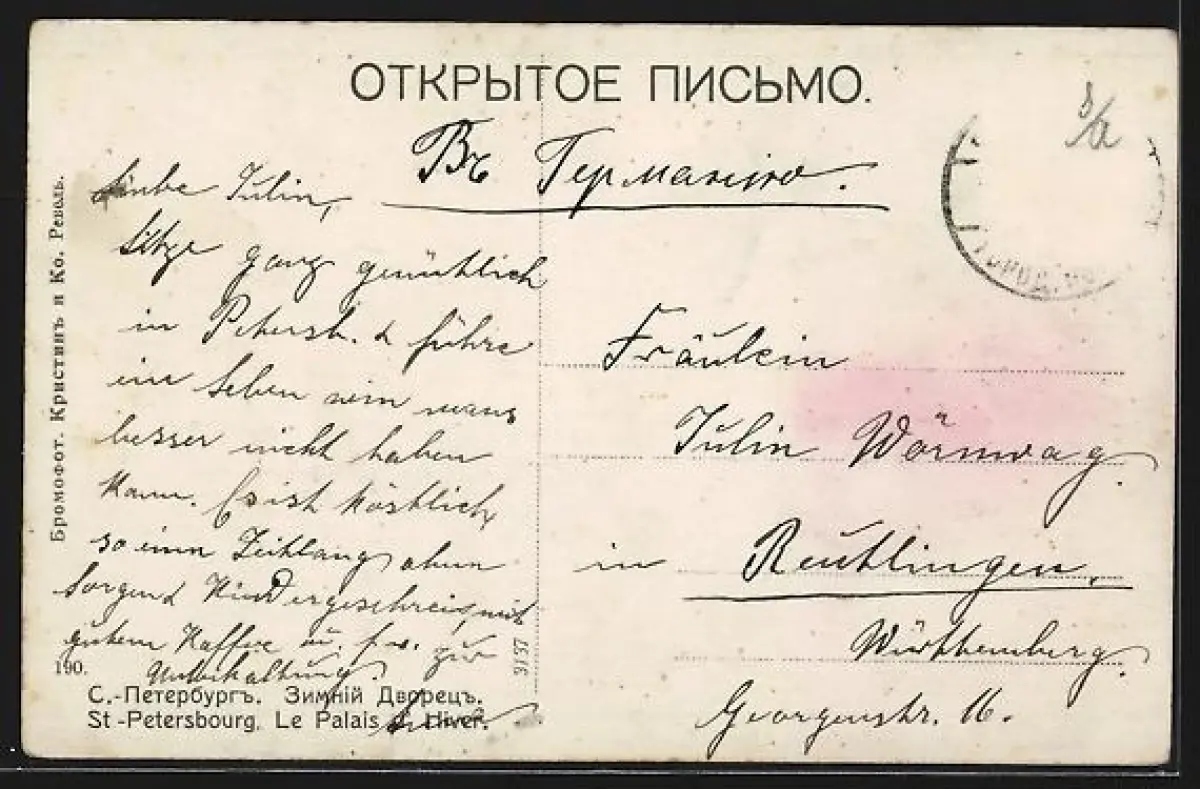 ОТКРЫТОЕ ПИСЬМО.
Въ Германію.
Liebe Julie,
Sitze ganz gemütlich
in Petersb. & führe
ein Leben wie mans
besser nicht haben
kann. Es ist köstlich
so eine Zeitlang ohne
Sorgen & Kindergeschrei, mit
gutem Kaffee u. s. w. zur
Unterhaltung.
Fräulein
Julie Wörnwag
in Reutlingen.
Württemberg
Georgenstr. 16.
Бромофот. Кристинъ и Ко. Револь.
190.
3137
С.-Петербургъ. Зимній Дворецъ.
St-Petersbourg. Le Palais d. Hiver.